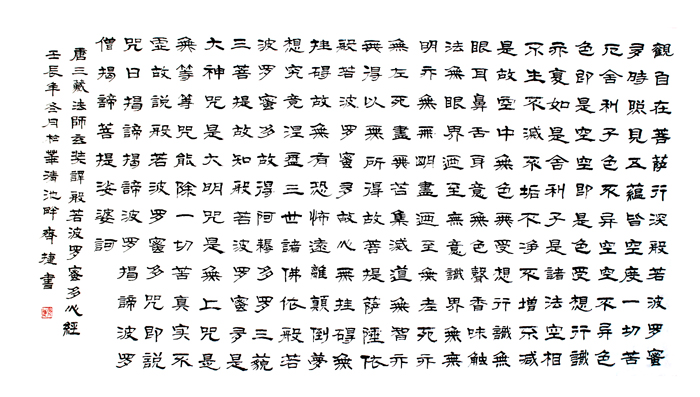 觀自在菩薩行深般若波罗蜜
多時照見五蘊皆空度一切苦
厄舍利子色不异空空不异色
色即是空空即是色受想行識
亦复如是舍利子是諸法空相
不生不滅不垢不净不增不减
是故空中無色無受想行識無
眼耳鼻舌身意無色聲香味触
法無眼界迺至無意識界無無
明亦無無明盡迺至無老死亦
無老死盡無苦集滅道無智亦
無得以無所得故菩提薩埵依
般若波罗蜜多故心無挂碍無
挂碍故無有恐怖遠離顛倒夢
想究竟涅槃三世諸佛依般若
波罗蜜多故得阿耨多罗三藐
三菩提故知般若波罗蜜多是
大神咒是大明咒是無上咒是
無等等咒能除一切苦真实不
虚故説般若波罗蜜多咒即説
咒曰揭諦揭諦波罗揭諦波罗
僧揭諦菩提娑婆訶
唐三藏法師玄奘譯般若波罗蜜多心經
壬辰年冬月於華清池畔齊捷書